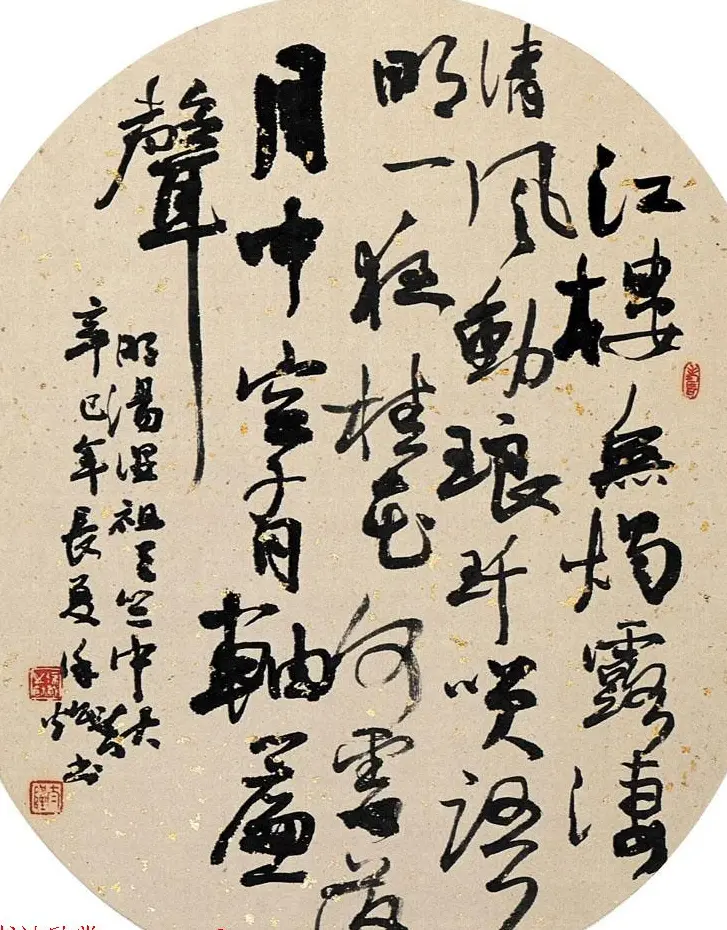 江樓無燭露凄
清風動琅玕笑語
明一夜桂花何處落
月中空有軸簾
聲
明湯顯祖天竺中秋
辛巳年長夏徐書